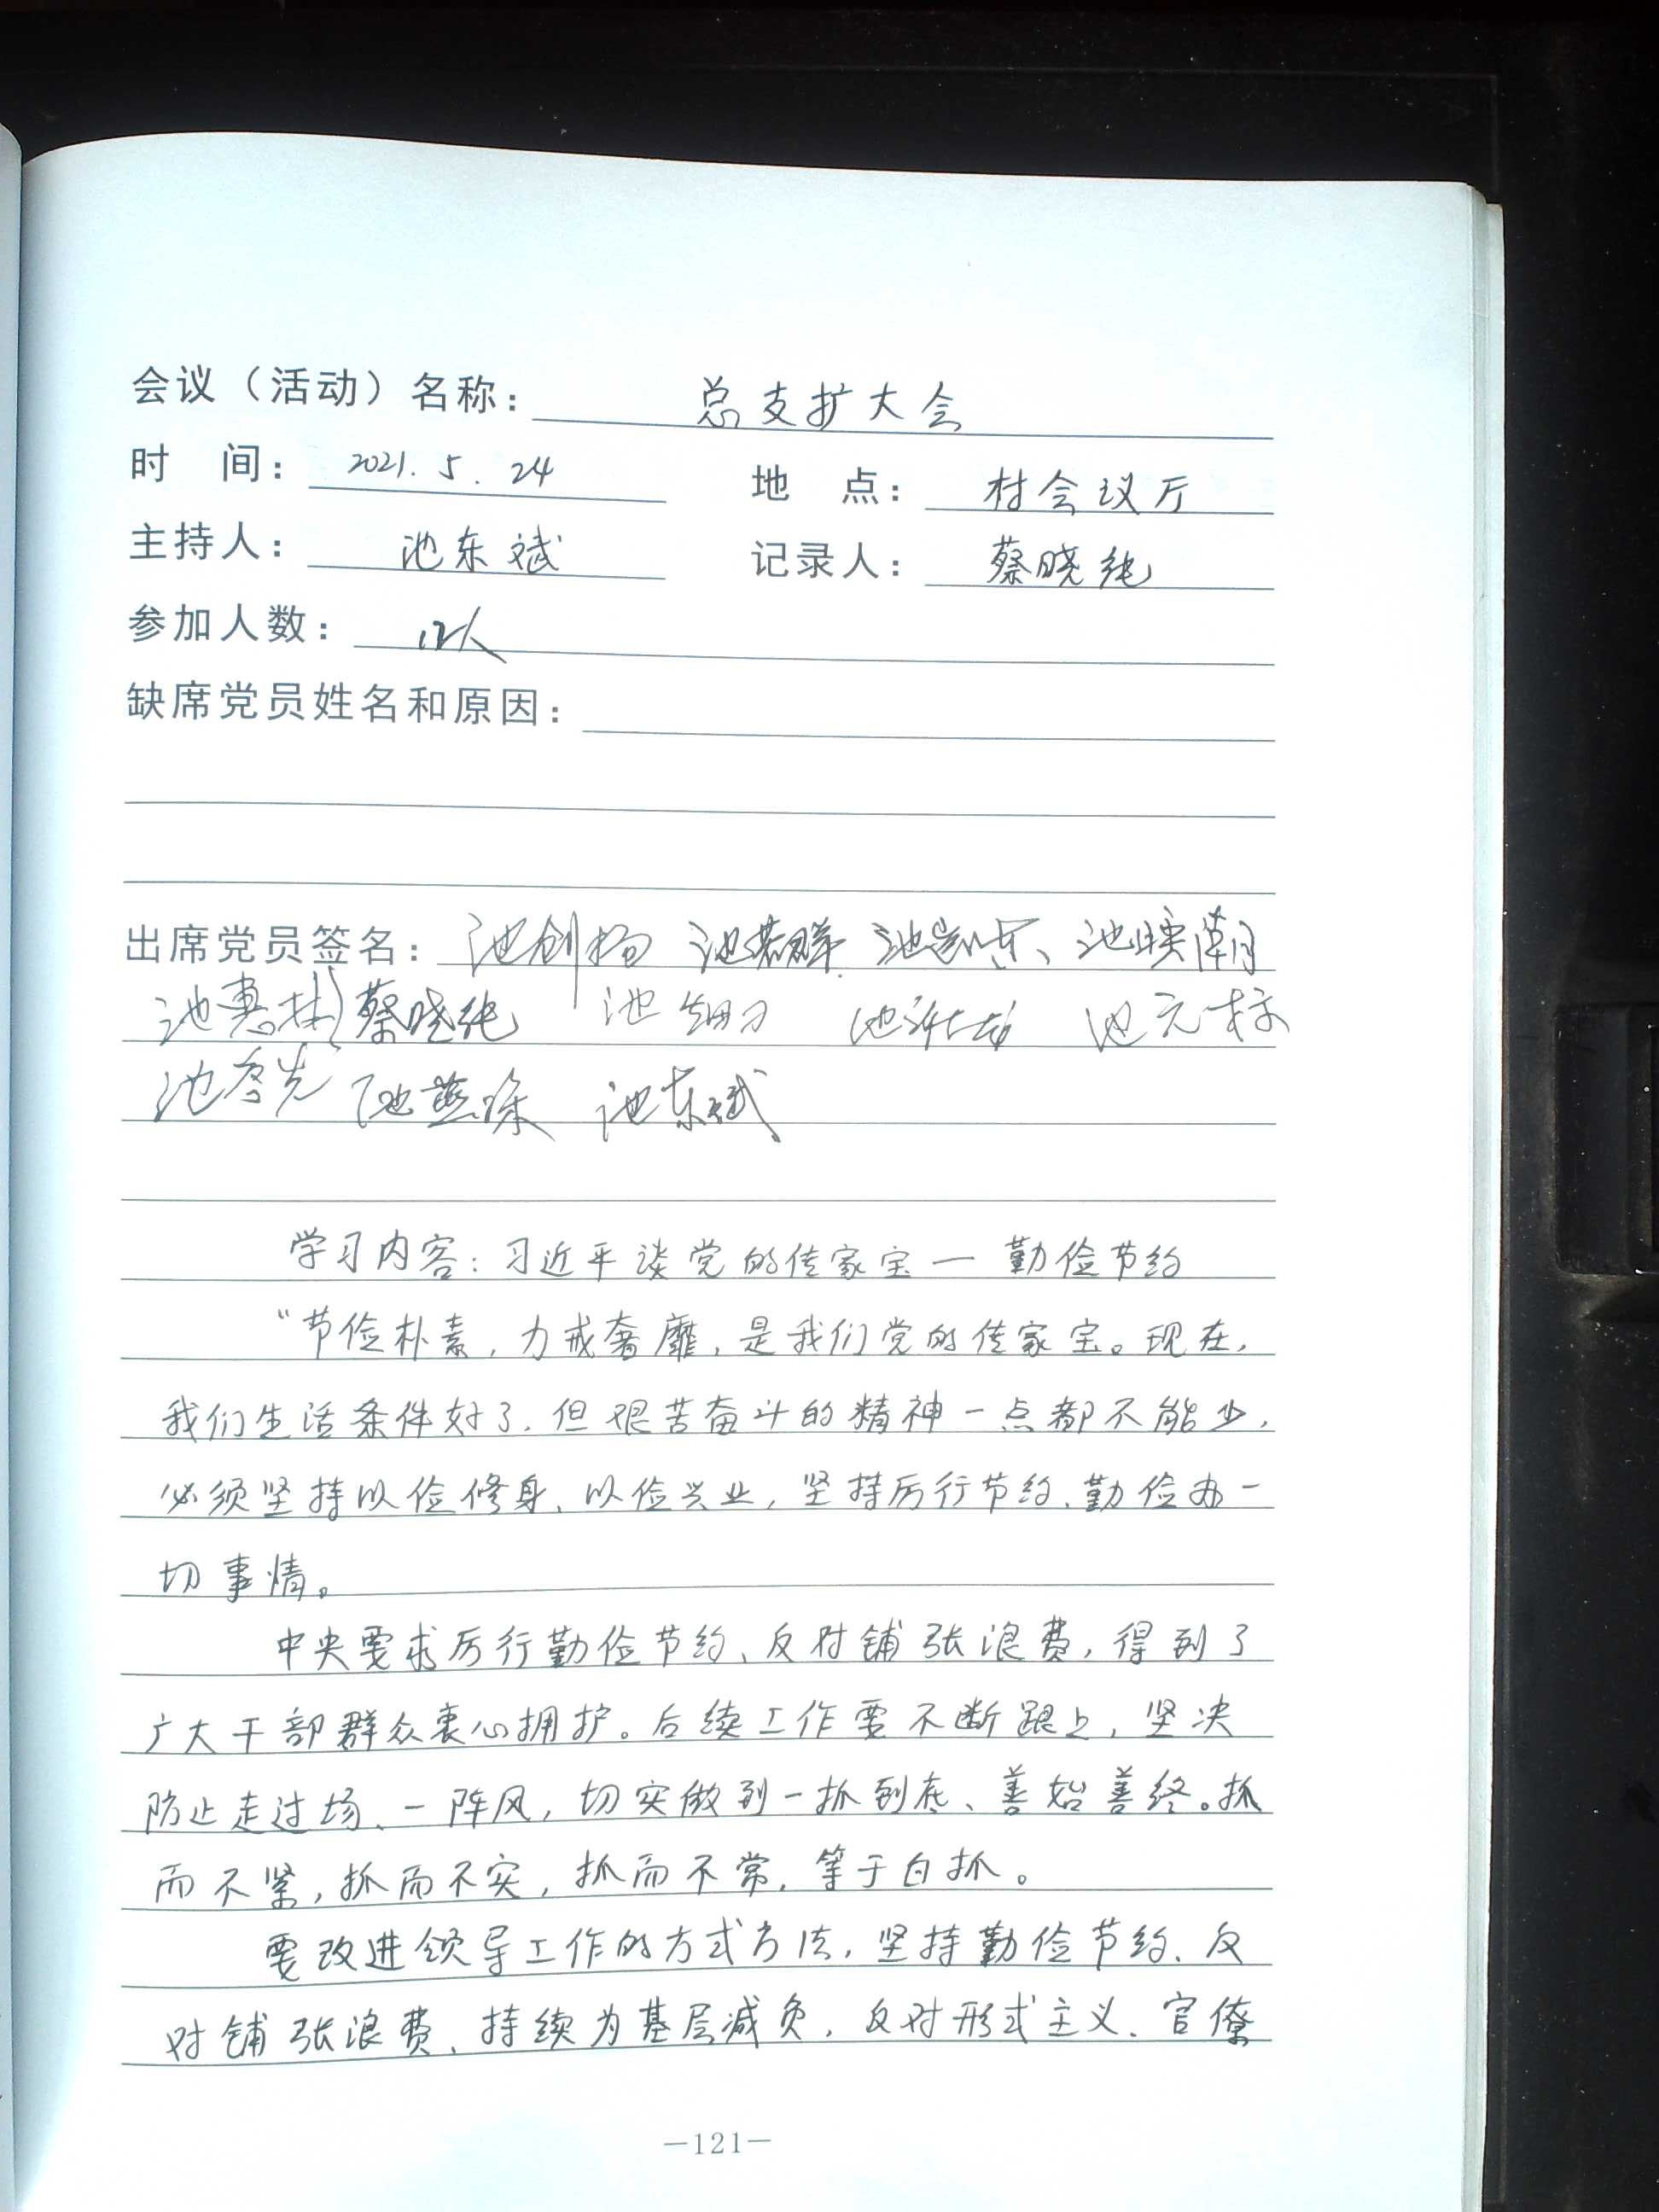 会议（活动）名称：总支扩大会
时 间：2021.5.24 地 点：村会议厅
主持人：池东斌 记录人：蔡晓纯
参加人数：12人
缺席党员姓名和原因：
出席党员签名：池创扬 池若群
池惠彬 蔡晓纯 池元标
池燕深 池东斌
学习内容：习近平谈党的传家宝一勤俭节约
“节俭朴素，力戒奢靡，是我们党的传家宝。现在，
我们生活条件好了，但艰苦奋斗的精神一点都不能少，
必须坚持以俭修身、以俭兴业，坚持厉行节约、勤俭办一
切事情。
中央要求厉行勤俭节约、反对铺张浪费，得到了
广大干部群众衷心拥护。后续工作要不断跟上，坚决
防止走过场、一阵风，切实做到一抓到底、善始善终。抓
而不紧，抓而不实，抓而不常，等于白抓。
要改进领导工作的方式方法，坚持勤俭节约、反
对铺张浪费、持续为基层减负，反对形式主义、官僚
—121—